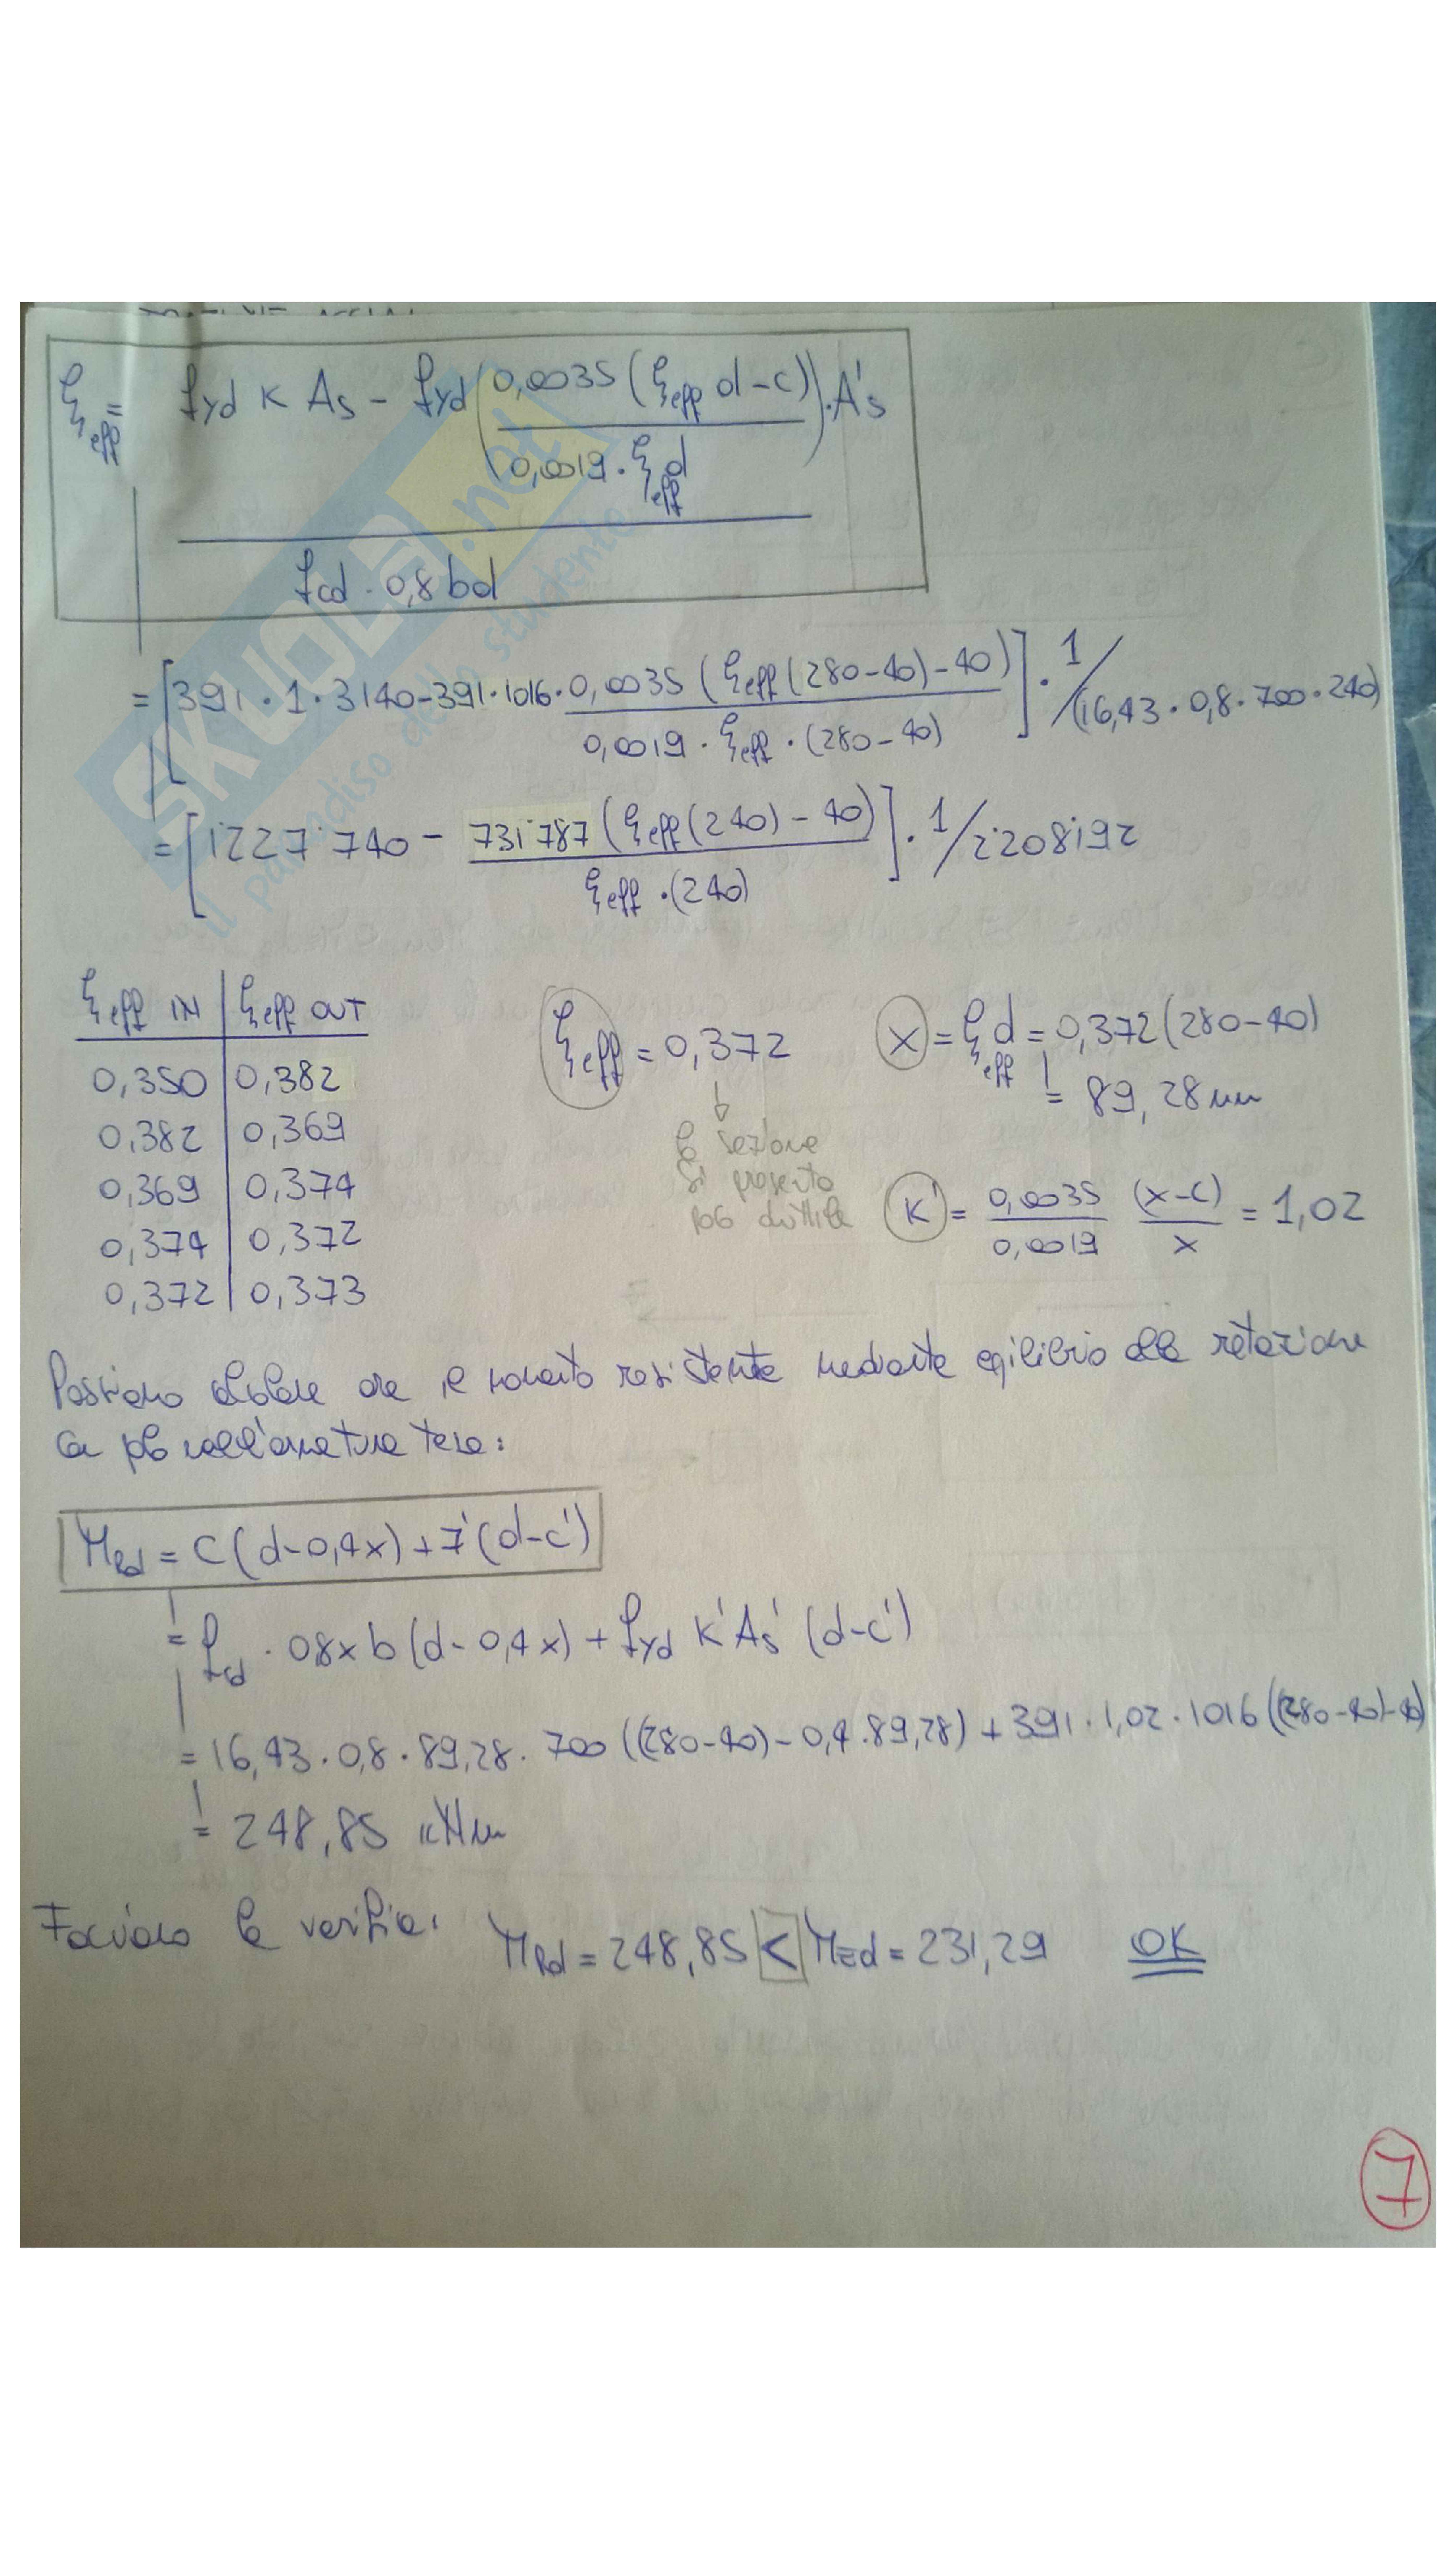 ξeff = fyd K As - fyd (0,0035 (ξeff d-c) / 0,0019 · ξeff d) · A's
fcd · 0,8 bd
= [391 · 1 · 3140 - 391 · 1016 · 0,0035 (ξeff (280-40) - 40) / 0,0019 · ξeff · (280-40)] · 1/(16,43 · 0,8 · 700 · 240)
= [1'227'740 - 731'787 (ξeff (240) - 40) / ξeff · (240)] · 1/2'208'192
ξeff IN ξeff OUT
0,350 0,382
0,382 0,369
0,369 0,374
0,374 0,372
0,372 0,373
ξeff = 0,372
la sezione
si presenta
poco duttile
x = ξeff d = 0,372 (280-40)
= 89,28 mm
K' = 0,0035 / 0,0019 (x-c) / x = 1,02
Possiamo calcolare ora il momento resistente mediante eqilibrio alla rotazione
con polo nell'armatura tesa:
MRd = C (d-0,4x) + T' (d-c')
= fcd · 0,8 x b (d-0,4 x) + fyd K' As' (d-c')
= 16,43 · 0,8 · 89,28 · 700 ((280-40) - 0,4 · 89,28) + 391 · 1,02 · 1016 ((280-40)-40)
= 248,85 kNm
Facciamo la verifica: MRd = 248,85 < MEd = 231,29 OK
7
SKUOLA.net
il paradiso dello studente